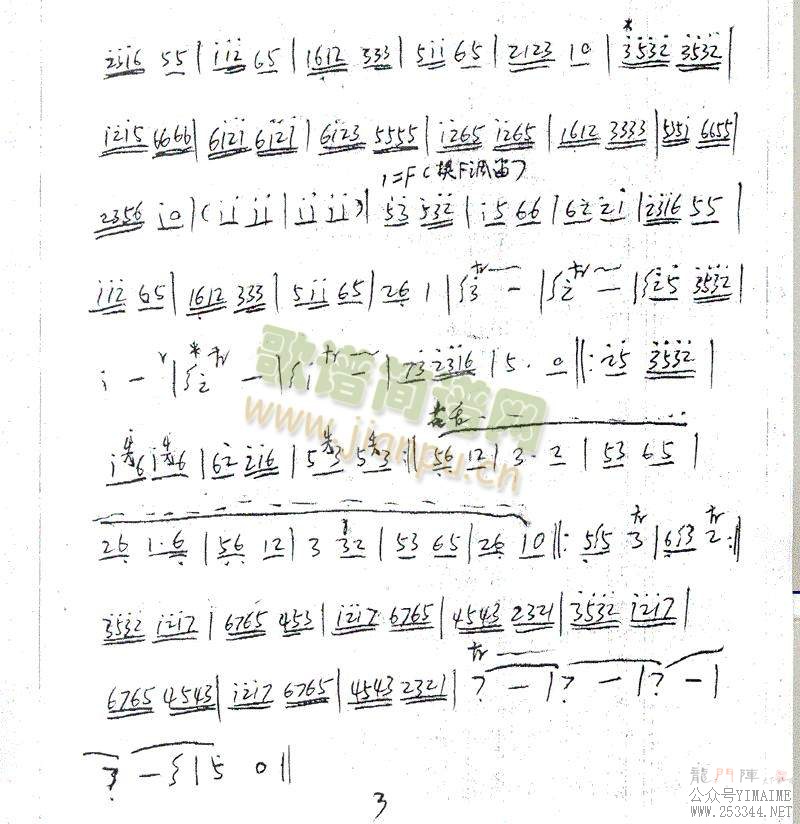 2316 55 | i i 2 65 | 1612 333 | 5 i i 65 | 2123 10 | 3532 3532 |
1215 6666 | 6121 6121 | 6123 5555 | 1265 1265 | 1612 3333 | 5351 6655 |
1=F(换F调笛)
2356 i0 | (i i i i | i i i i) | 53 532 | i5 66 | 62 2i | 2316 55 |
i i 2 65 | 1612 333 | 5 i i 65 | 26 1 | 3 - | 2 - | 25 3532 |
i - | 2 - | i - | 2316 | 5. 0 ||: 25 3532 |
i 6 i 6 | 62 216 | 5 3 5 3 :|| 56 12 | 3. 2 | 53 65 |
26 1.6 | 56 12 | 3 32 | 53 65 | 26 10 ||: 3 | 2 :||
3532 1217 | 6765 453 | 1217 6765 | 4543 2321 | 3532 1217 |
6765 4543 | 1217 6765 | 4543 2321 | ? - | ? - | ? - |
- | 5 0 ||
3
歌谱简谱网
www.jianpu.cn
龍門陣
公众号YIMAIME
www.253344.NET